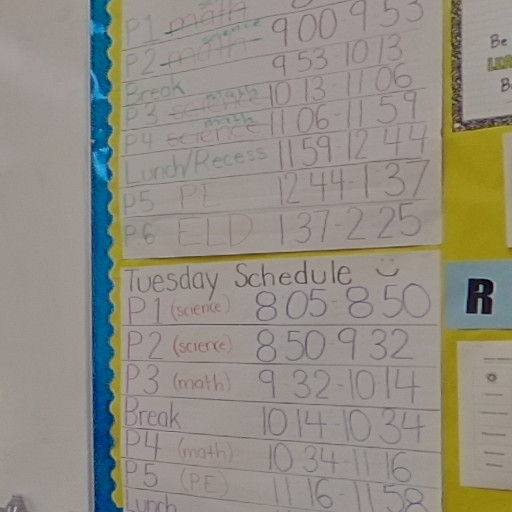 P1 math 900-953
P2 math science
Break 953-1013
P3 science math 1013-1106
P4 science math 1106-1159
Lunch/Recess 1159-1244
P5 PE 1244-137
P6 ELD 137-225
Tuesday Schedule
P1 (science) 805-850
P2 (science) 850-932
P3 (math) 932-1014
Break 1014-1034
P4 (math) 1034-1116
P5 (P.E) 1116-1158
Lunch
Be
R